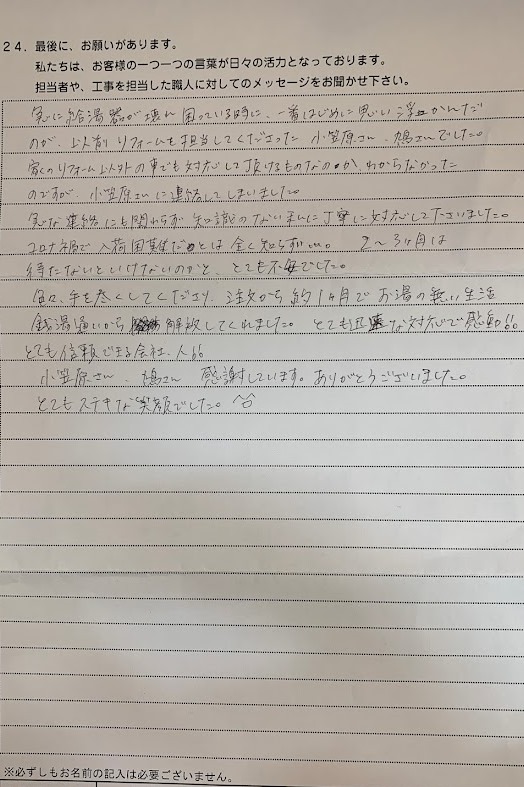 24．最後に、お願いがあります。
私たちは、お客様の一つ一つの言葉が日々の活力となっております。
担当者や、工事を担当した職人に対してのメッセージをお聞かせ下さい。
急に給湯器が壊れ困っている時に、一番はじめに思い浮かんだ
のが、以前リフォームを担当してくださった小笠原さん、鳩さんでした。
家のリフォーム以外の事でも対応して頂けるものなのか、わからなかった
のですが、小笠原さんに連絡してしまいました。
急な連絡にも関わらず知識のない私に丁寧に対応して下さいました。
コロナ禍で入荷困難だとは全く知らず…。 2〜3ヶ月は
待たないといけないのかと、とても不安でした。
色々、手を尽くしてくださり、注文から約1ヶ月でお湯の無い生活
銭湯通いから 解放してくれました。とても迅速な対応で感動!!
とても信頼できる会社、人!!
小笠原さん、鳩さん 感謝しています。ありがとうございました。
とてもステキな笑顔でした。^^
※必ずしもお名前の記入は必要ございません。